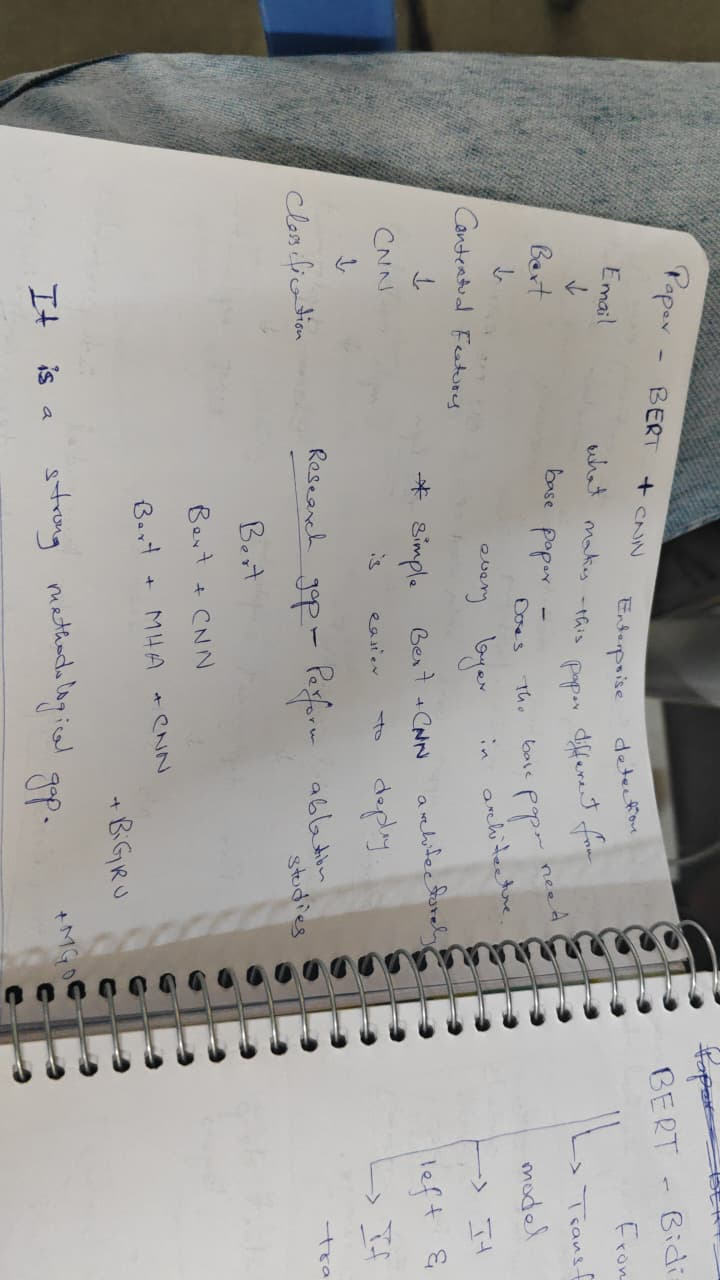 Paper - BERT + CNN Enterprise detection
Email
↓
Bert
↓
Contextual Features
↓
CNN
↓
Classification
what makes this paper different from
base paper - Does the base paper need
every layer in architecture.
* Simple Bert + CNN architecturely
is easier to deploy.
Research gap - Perform ablation
studies
Bert
Bert + CNN
Bert + MHA + CNN
+ BiGRU
+ MGO
It is a strong methodological gap.
BERT - Bidi
From
↳ Transf
model
→ It
left &
→ It
tra